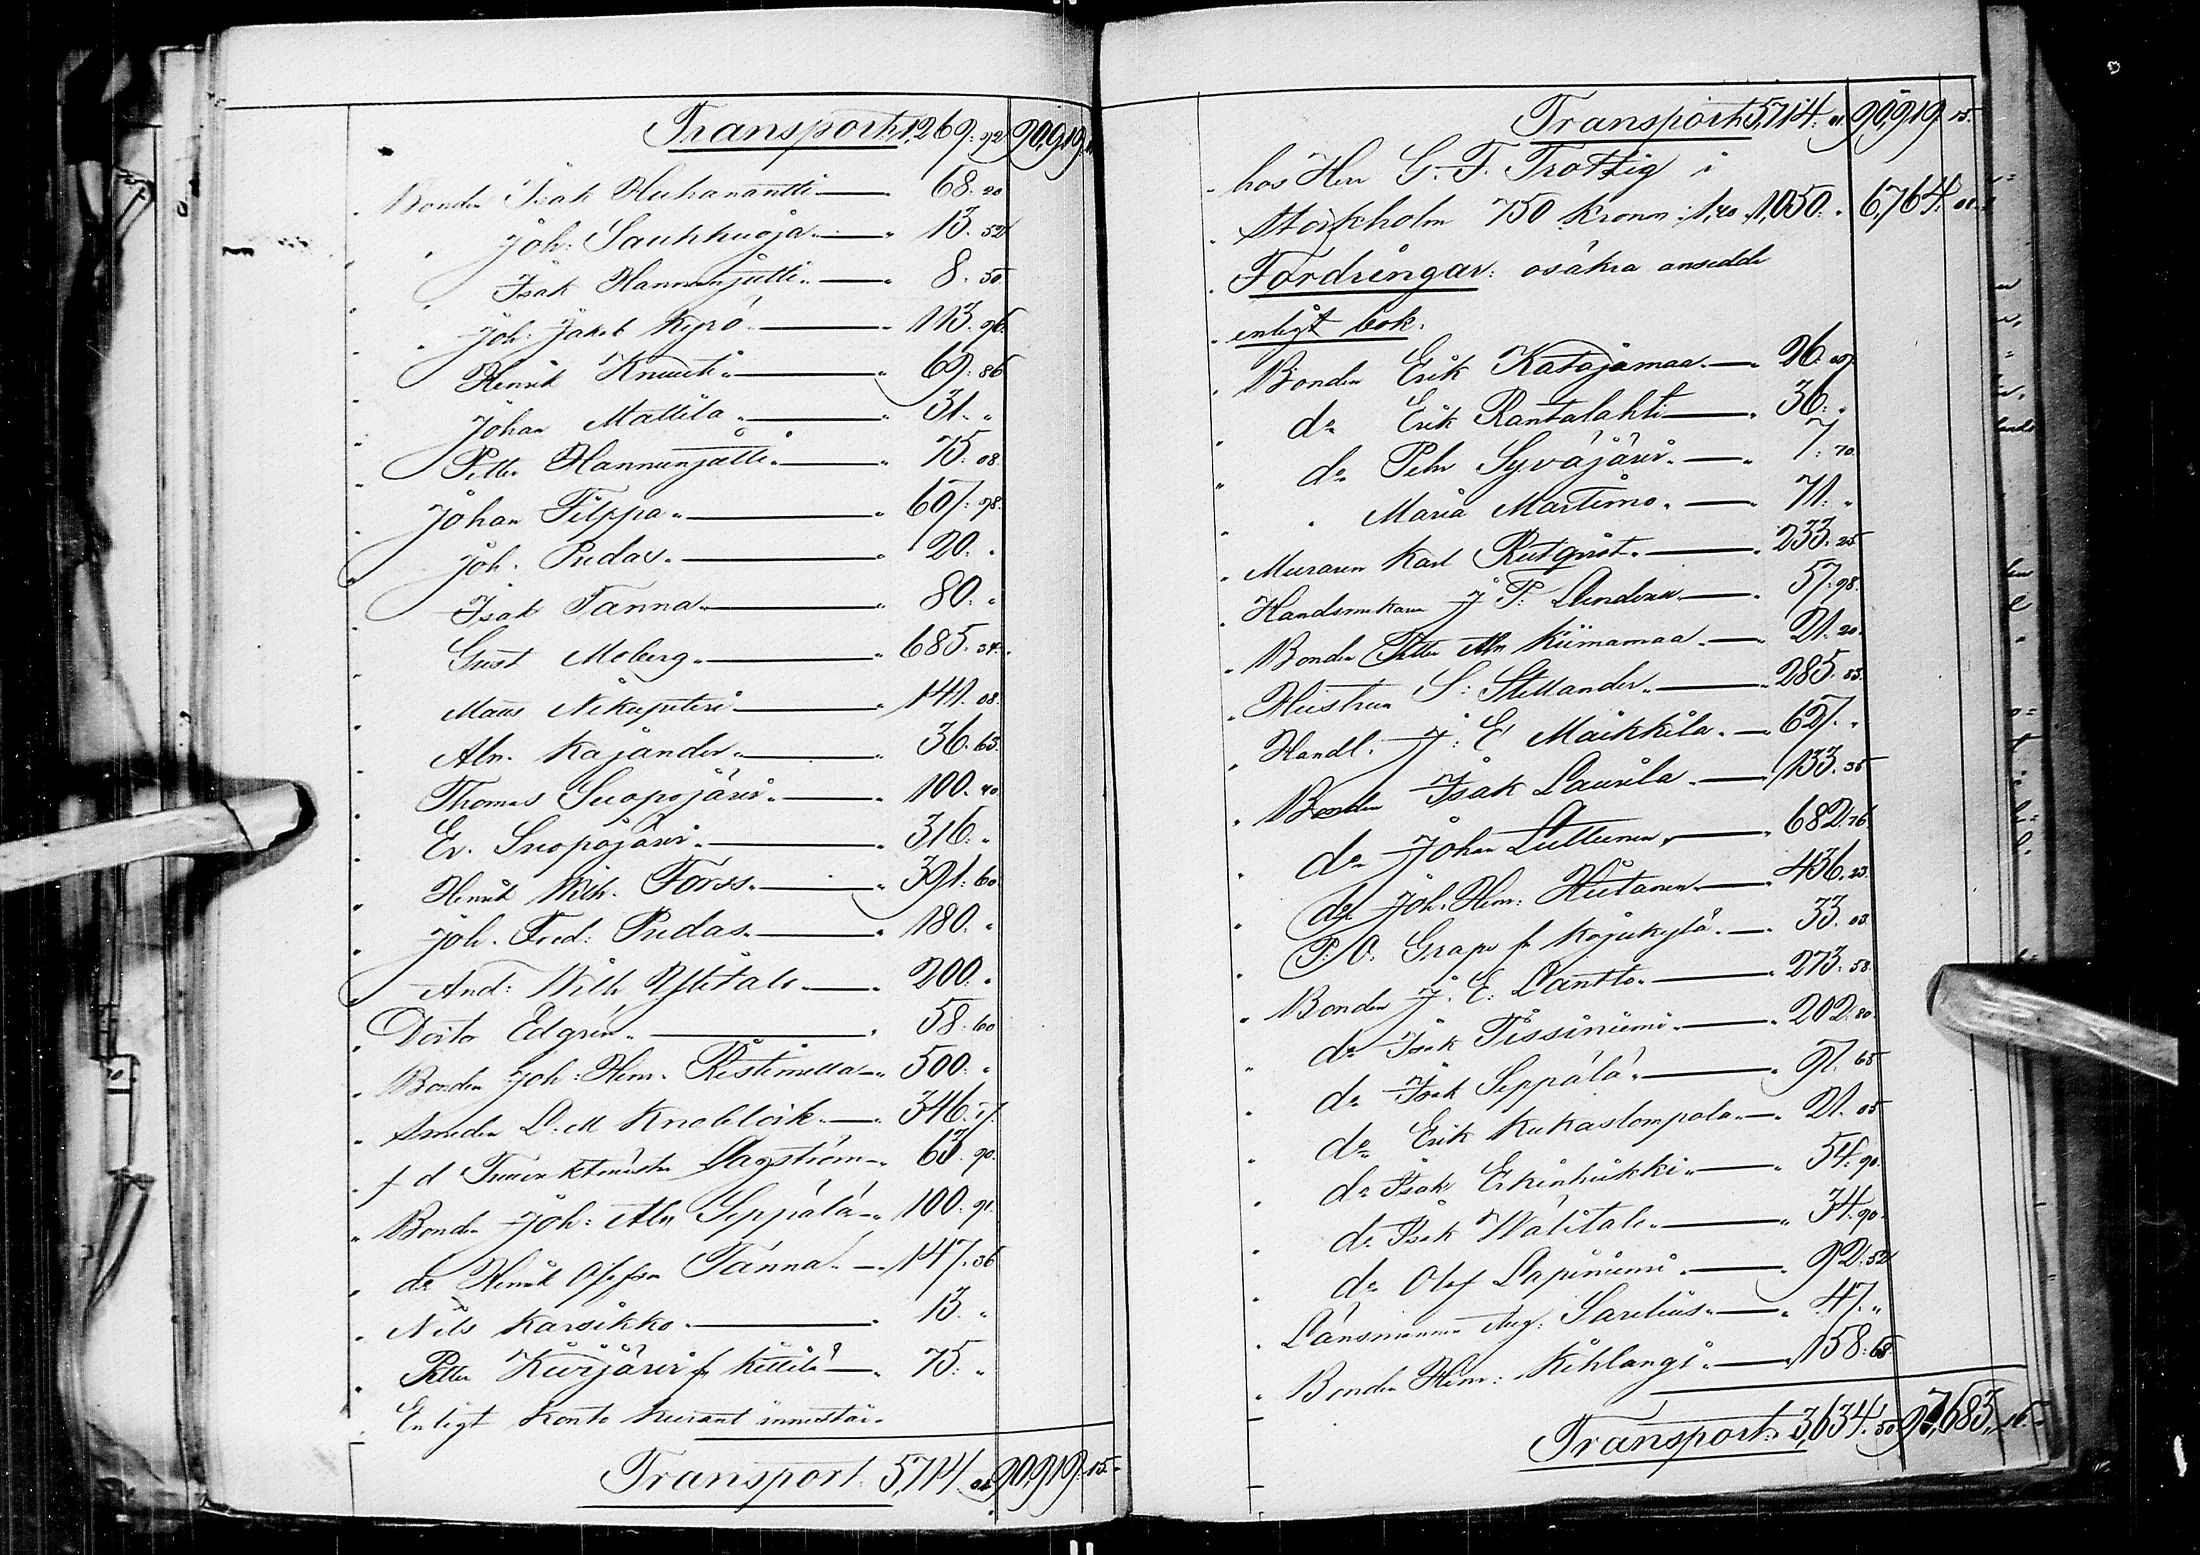 Transport 1,269. 92. 90,919.
Bonden Isak Huhanantti 68. 20
" Joh: Saukkuoja 13. 52
Isak Hannunjutti 8. 50
" Joh: Jakob Kyrö 113. 96
Henrik 69. 86
Johan Mattila 31. "
Petter Hannunjutti 75. 08
Johan Filppa 607. 98.
Joh. Pudas 20. "
Isak Fanna 80. "
Gust Moberg 685. 34.
Mans 141. 08.
Alr. Kajander 36. 63.
Thomas Suopajärvi 100. 40
Er. Suopajärvi 316. "
Henrik Wilh. Forss 391. 60
Joh. Fred: Pudas 180. "
And: Wilh Ylitalo 200. "
Doctor Edgren 58. 60
Bonden Joh: Henr. Ristimella 500. "
Smeden L: M Knoblock 346. 57.
f d Lagström 63. 90.
Bonden Joh: Alr Seppälä 100. 91.
do Henrik Olofsson Tanna 147. 36
Nils Karsikko 13. "
Petter Kivijärvi fr Kittilä 75. "
Enligt Konto Kurant innestår
Transport. 5,714. 01 90,919. 15.
Transport 5,714. 01. 90,919. 15.
hos Herr G. F. Trottzig i
Stockholm 750 Kronor 1,40 1,050. " 6,764. 01.
Fordringar: osäkra ansedda
enligt bok.
Bonden Erik Katajamaa 26. 09
do Erik Rantalahti 36. "
do Pehr Syväjärvi 7. 70
" Maria Martimo 71. "
Muraren Karl Rutqvist 233. 25
J P: 57. 98.
Bonden Petter Alr Kiimamaa 21. 20.
Hustrun S: Stellander 285. 53.
Handl. J: E Maikkila 627. "
Bonden Isak Laurila 133. 35
do Johan Luttunen 682. 76
do Joh. Henr: Hietanen 436. 23.
P. O. Grape fr Kojukylä 33. 03
Bonden J. E: Lantto 273. 58.
do Isak Tissiniemi 202. 80.
do Isak Seppälä 91. 65
do Erik Kukaslompola 21. 05
do Isak Erkinheikki 54. 90.
do Isak Wälitalo 34. 90.
do Olof Lapiniemi 92. 52
Länsmannen Aug: Sarelius 47. "
Bonden Henr: Kihlangi 158. 68
Transport. 3,634. 50 97,683. 16.